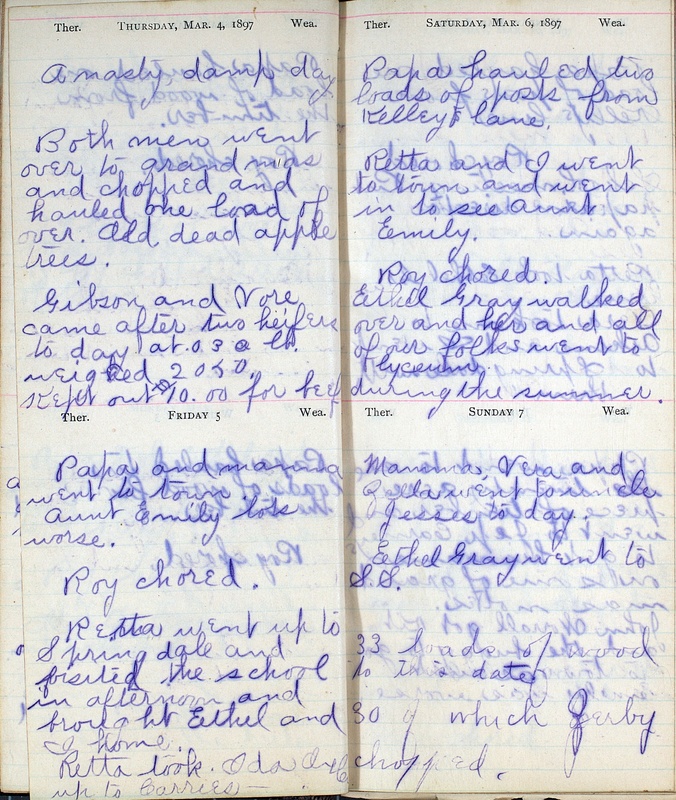 Ther. THURSDAY, MAR. 4, 1897 Wea.
A nasty damp day
Both men went
over to grand mas
and chopped and
hauled one load of
over. Old dead apple
trees.
Gibson and Vore
came after two heifers
to day at .03 a lb.
weighed 2050.
Kept out $10.00 for beef
Ther. FRIDAY 5 Wea.
Papa and mamma
went to town
Aunt Emily lots
worse.
Roy chored.
Retta went up to
Springdale and
visited the school
in afternoon and
brought Eethel and
I home.
Retta took Oda
up to Carries
Ther. SATURDAY, MAR. 6, 1897 Wea.
Papa hauled two
loads of posts from
Kelleys lane.
Retta and I went
to town and went
in to see aunt
Emily.
Roy chored.
Eethel Gray walked
over and her and all
of our folks went to
Lyceum
during the summer.
Ther. SUNDAY 7 Wea.
Mamma, Vera and
Retta went to uncle
Jesses to day.
Eethel Gray went to
S.S.
33 loads of wood
to this date
30 of which Zerby
chopped.